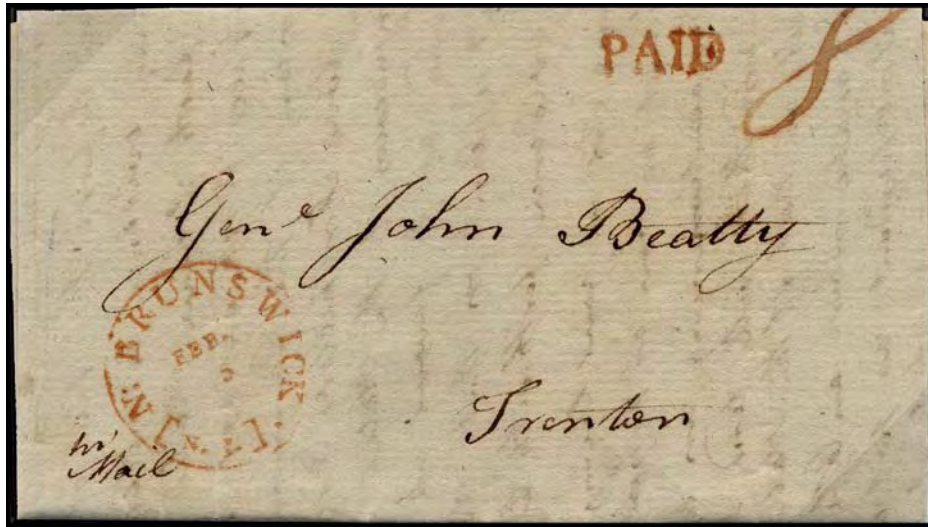 PAID 8
Genl John Beatty
N. BRUNSWICK [N.J.]
FEB.
Trenton
Mail